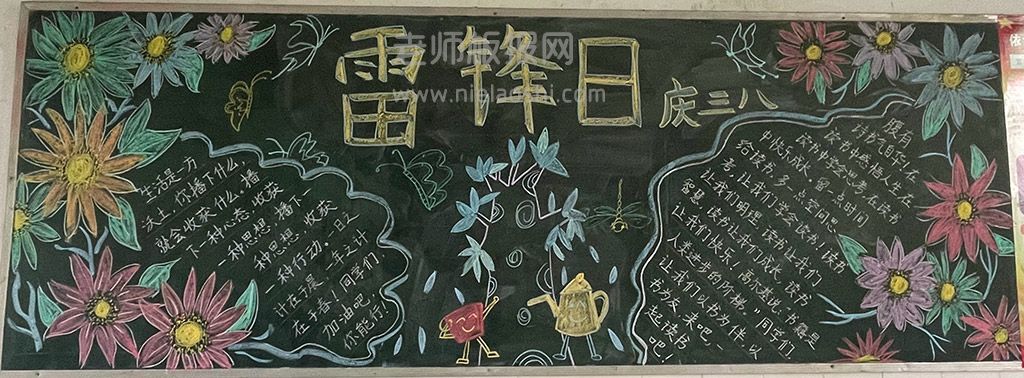 雷锋日
庆三八
老师板报网
www.nielaoshi.com
生活是一方
沃土，你播下什么，
就会收获什么。播
下一种心态，收获
一种思想，播下
一种思想，收获
一种行动。一日之
计在于晨，一年之计
在于春，同学们，
加油吧！
你能行！
腹有
诗书气自华，在
读书中感悟人生，在
读书中学会思考，在读书
中快乐成长，留一点时间
给读书，多一点空间思
考，让我们学会读书！读书
让我们明理，读书让我们
智慧，读书让我们成长，读书
让我们快乐！高尔基说：书籍是
人类进步的阶梯。"同学们，
让我们以书为伴，以
书为友，来吧，一
起读书
吧！
依